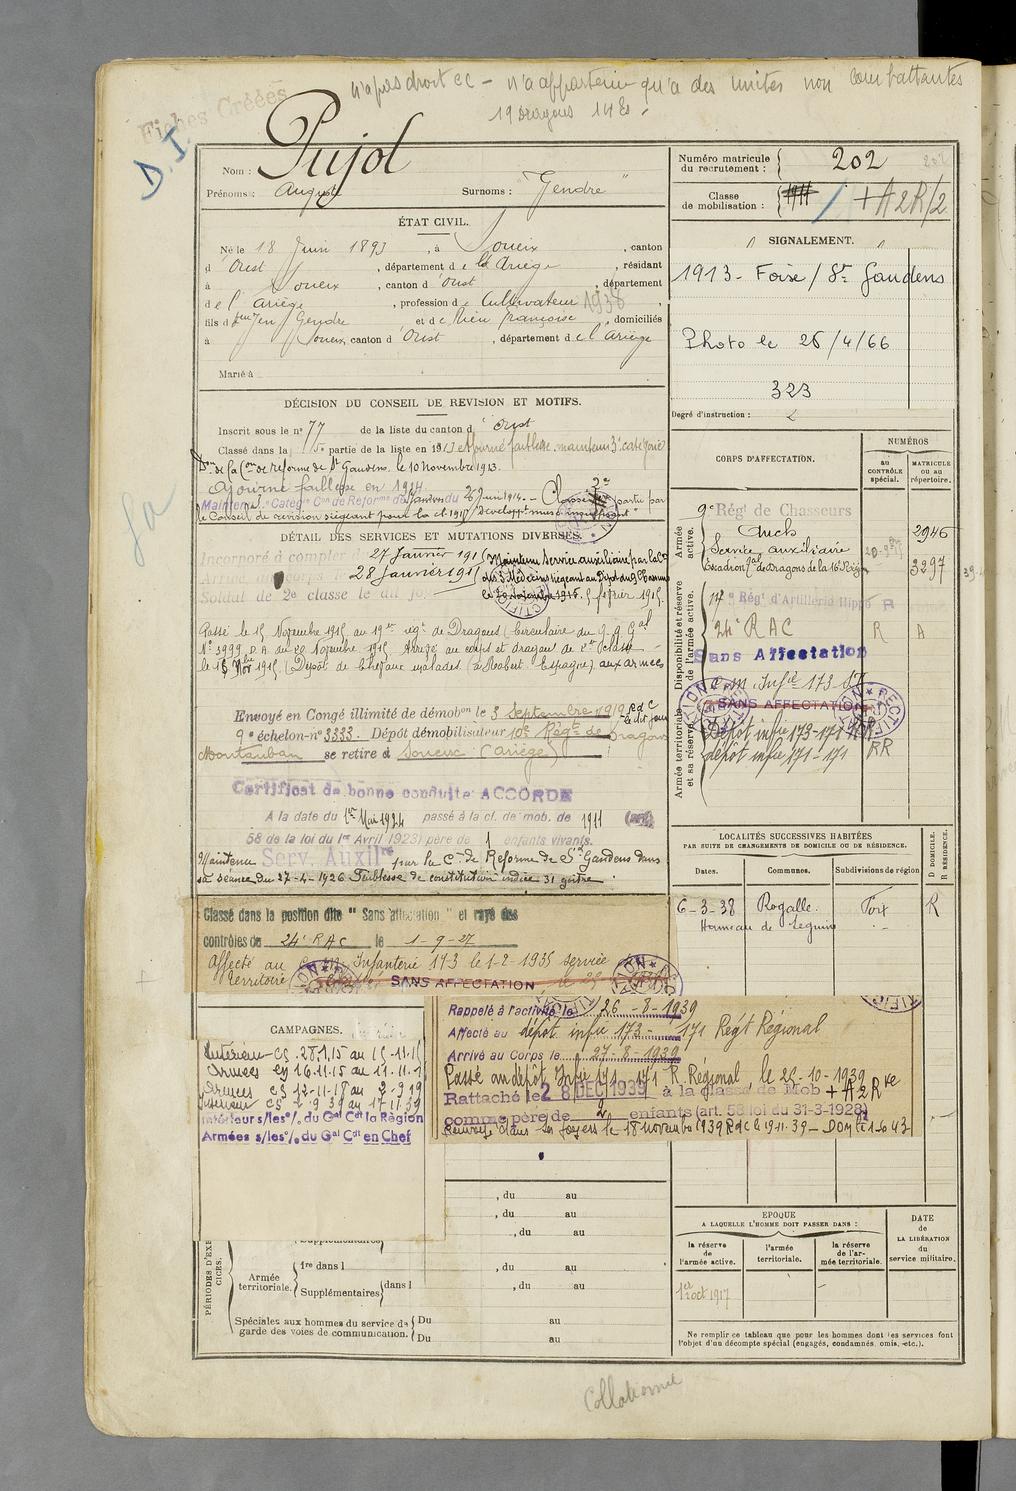 n'a pas droit CC - n'a appartenu qu'a des unités non combattantes
19 Dragons 14 E
Fiches Créées
D.I.
Pujol
Nom :
Prénoms : Auguste Surnoms : "Gendre"
Numéro matricule du recrutement : 202 202
Classe de mobilisation : 1911 + A2R/2
ÉTAT CIVIL.
Né le 18 Juin 1893, à Soueix, canton
d'Oust, département de l'Ariège, résidant
à Soueix, canton d'Oust, département
de l'Ariège, profession de Cultivateur 1938
fils de feu Jean Gendre et de Rieu françoise domiciliés
à Soueix, canton d'Oust, département de l'Ariège
Marié à
SIGNALEMENT.
1913 - Foix / St Gaudens
Photo le 26/4/66
323
Degré d'instruction : 2
DÉCISION DU CONSEIL DE REVISION ET MOTIFS.
Inscrit sous le n° 77 de la liste du canton d'Oust
Classé dans la 5e partie de la liste en 1913 ajourné faiblesse. maintenu 3e catégorie
Don de la Con de réforme de St Gaudens. le 10 novembre 1913.
Ajourné faiblesse en 1914.
Maintenu Catégie Con de Réforme de St Gaudens du 26 Juin 1914. - Classé 2e partie par
le Conseil de revision siégeant pour la cl. 1915 "Developpt musc. insuffisant"
DÉTAIL DES SERVICES ET MUTATIONS DIVERSES.
Incorporé à compter du 27 Janvier 1915
Arrivé au corps le 28 Janvier 1915
Soldat de 2e classe le dit jour
Maintenu service auxiliaire par la Con
des 3 Médecins siégeant au Dépot du 9 Chasseurs
le 20 Novembre 1915. 5 février 1915.
Passé le 15 Novembre 1915 au 19e régt de Dragons (Circulaire du G.Q.Gal
N° 3999 D.A. du 20 Novembre 1915. Arrivé au corps et dragon de 2e classe
le 15 Nbre 1915 (Dépôt de Chevaux malades) aux armées
Envoyé en Congé illimité de démobon le 3 Septembre 1919
9e échelon - n° 3333. Dépôt démobilisateur 10e Régt de Dragons
Montauban se retire à Soueix (Ariège)
Certificat de bonne conduite ACCORDÉ
A la date du 1er Mai 1924 passé à la cl. de mob. de 1911 (art.
58 de la loi du 1er Avril 1923) père de 1 enfants vivants.
Maintenu Serv. Auxilre par la Con de Réforme de St Gaudens dans
sa séance du 27-4-1926 Faiblesse de constitution indice 31 goitre
Classé dans la position dite "Sans affectation" et rayé des
contrôles de 24e RAC le 1-9-27
Affecté au C.M. Infanterie 173 le 1-2-1935 service
territorial
SANS AFFECTATION
CORPS D'AFFECTATION.
NUMÉROS
au CONTRÔLE spécial.
MATRICULE ou au répertoire.
Armée active.
9e Rég. de Chasseurs
Auch 2946
Service auxiliaire
Escadron Tal de Dragons de la 16e Région 3297
Disponibilité et réserve de l'armée active.
14e Régt d'Artillerie Hippo R
24e RAC R A
Sans Affectation
Armée territoriale et sa réserve.
C.M. Infie 173 ST
SANS AFFECTATION
RECTIFICATION
Dépôt infie 173-171 RR
dépôt infie 171-171 RR
LOCALITÉS SUCCESSIVES HABITÉES
PAR SUITE DE CHANGEMENTS DE DOMICILE OU DE RÉSIDENCE.
Dates. Communes. Subdivisions de région D DOMICILE. R RÉSIDENCE.
6-3-38 Rogalle. Foix R
Hameau de Seguin -
CAMPAGNES.
Intérieur CS. 28.1.15 au 15-11-15
Armées CS 16.11.15 au 11.11.18
Armées CS 12-11-18 au 2-9-19
Intérieur CS 2-9-39 au 17-11-39
Intérieur s/les o/. du Gal Cdt la Région
Armées s/les o/. du Gal Cdt en Chef
Rappelé à l'activité le 26-8-1939
Affecté au dépôt infie 173 - 171 Régt Régional
Arrivé au Corps le 27-8-1939
Passé au dépôt Infie 171 - 171 R. Régional, le 25-10-1939
Rattaché le 28 DEC 1939 à la classe de Mob + A2Rve
comme père de 2 enfants (art. 58 loi du 31-3-1928)
Renvoyé dans ses foyers le 18 novembre 1939 RdC le 19.11.39 -
, du au
, du au
, du au
PÉRIODES D'EXERCICES.
Supplémentaires
Armée territoriale. 1re dans l , du au
Supplémentaires dans l , du au
Spéciales aux hommes du service de garde des voies de communication. Du au
Du au
EPOQUE
A LAQUELLE L'HOMME DOIT PASSER DANS :
la réserve de l'armée active.
l'armée territoriale.
la réserve de l'armée territoriale.
DATE de LA LIBÉRATION du service militaire.
1er oct 1917
Ne remplir ce tableau que pour les hommes dont les services font l'objet d'un décompte spécial (engagés, condamnés, omis, etc.).
Collationné